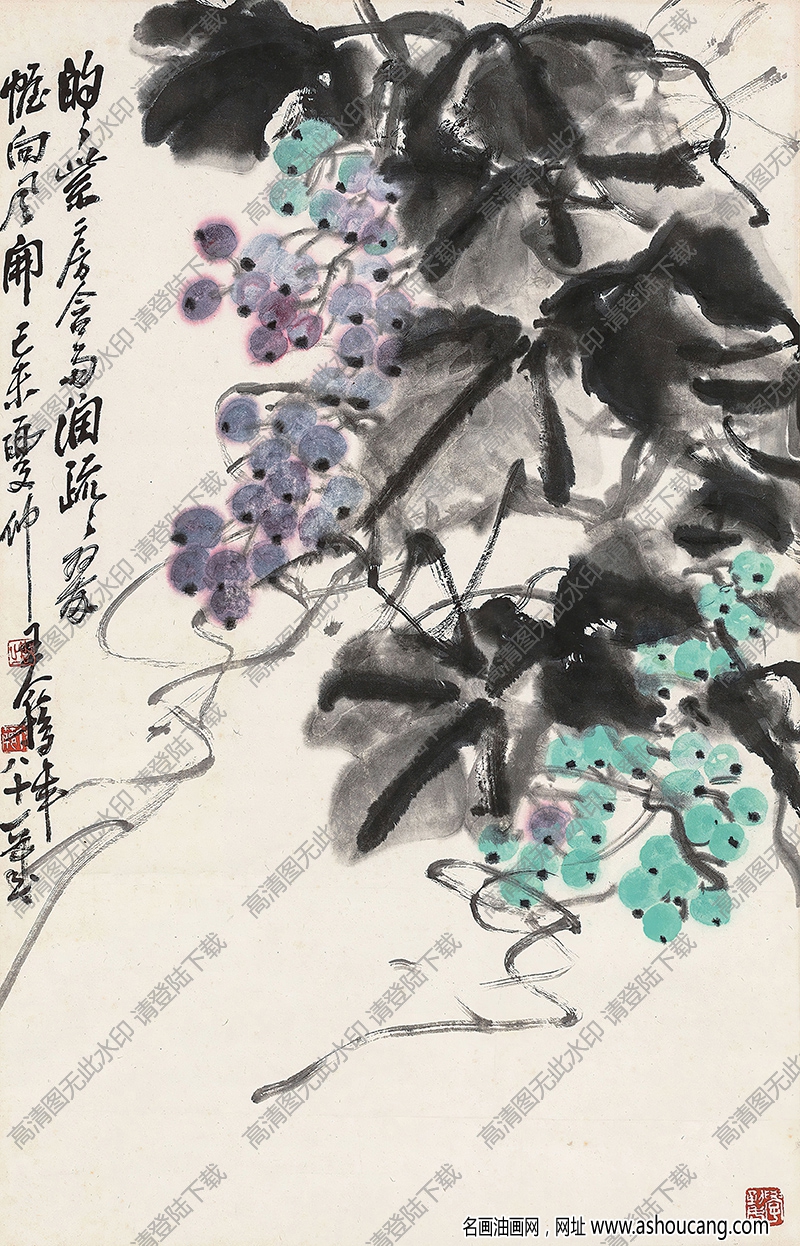 的〻紫房含雨潤疏〻翠
幄向風開 己未夏仲 王个簃年八十
高清图无此水印 请登陆下载
名画油画网，网址 www.ashoucang.com